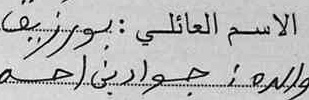 الاسم العائلي : بورزيق
والده : جوادي احـ